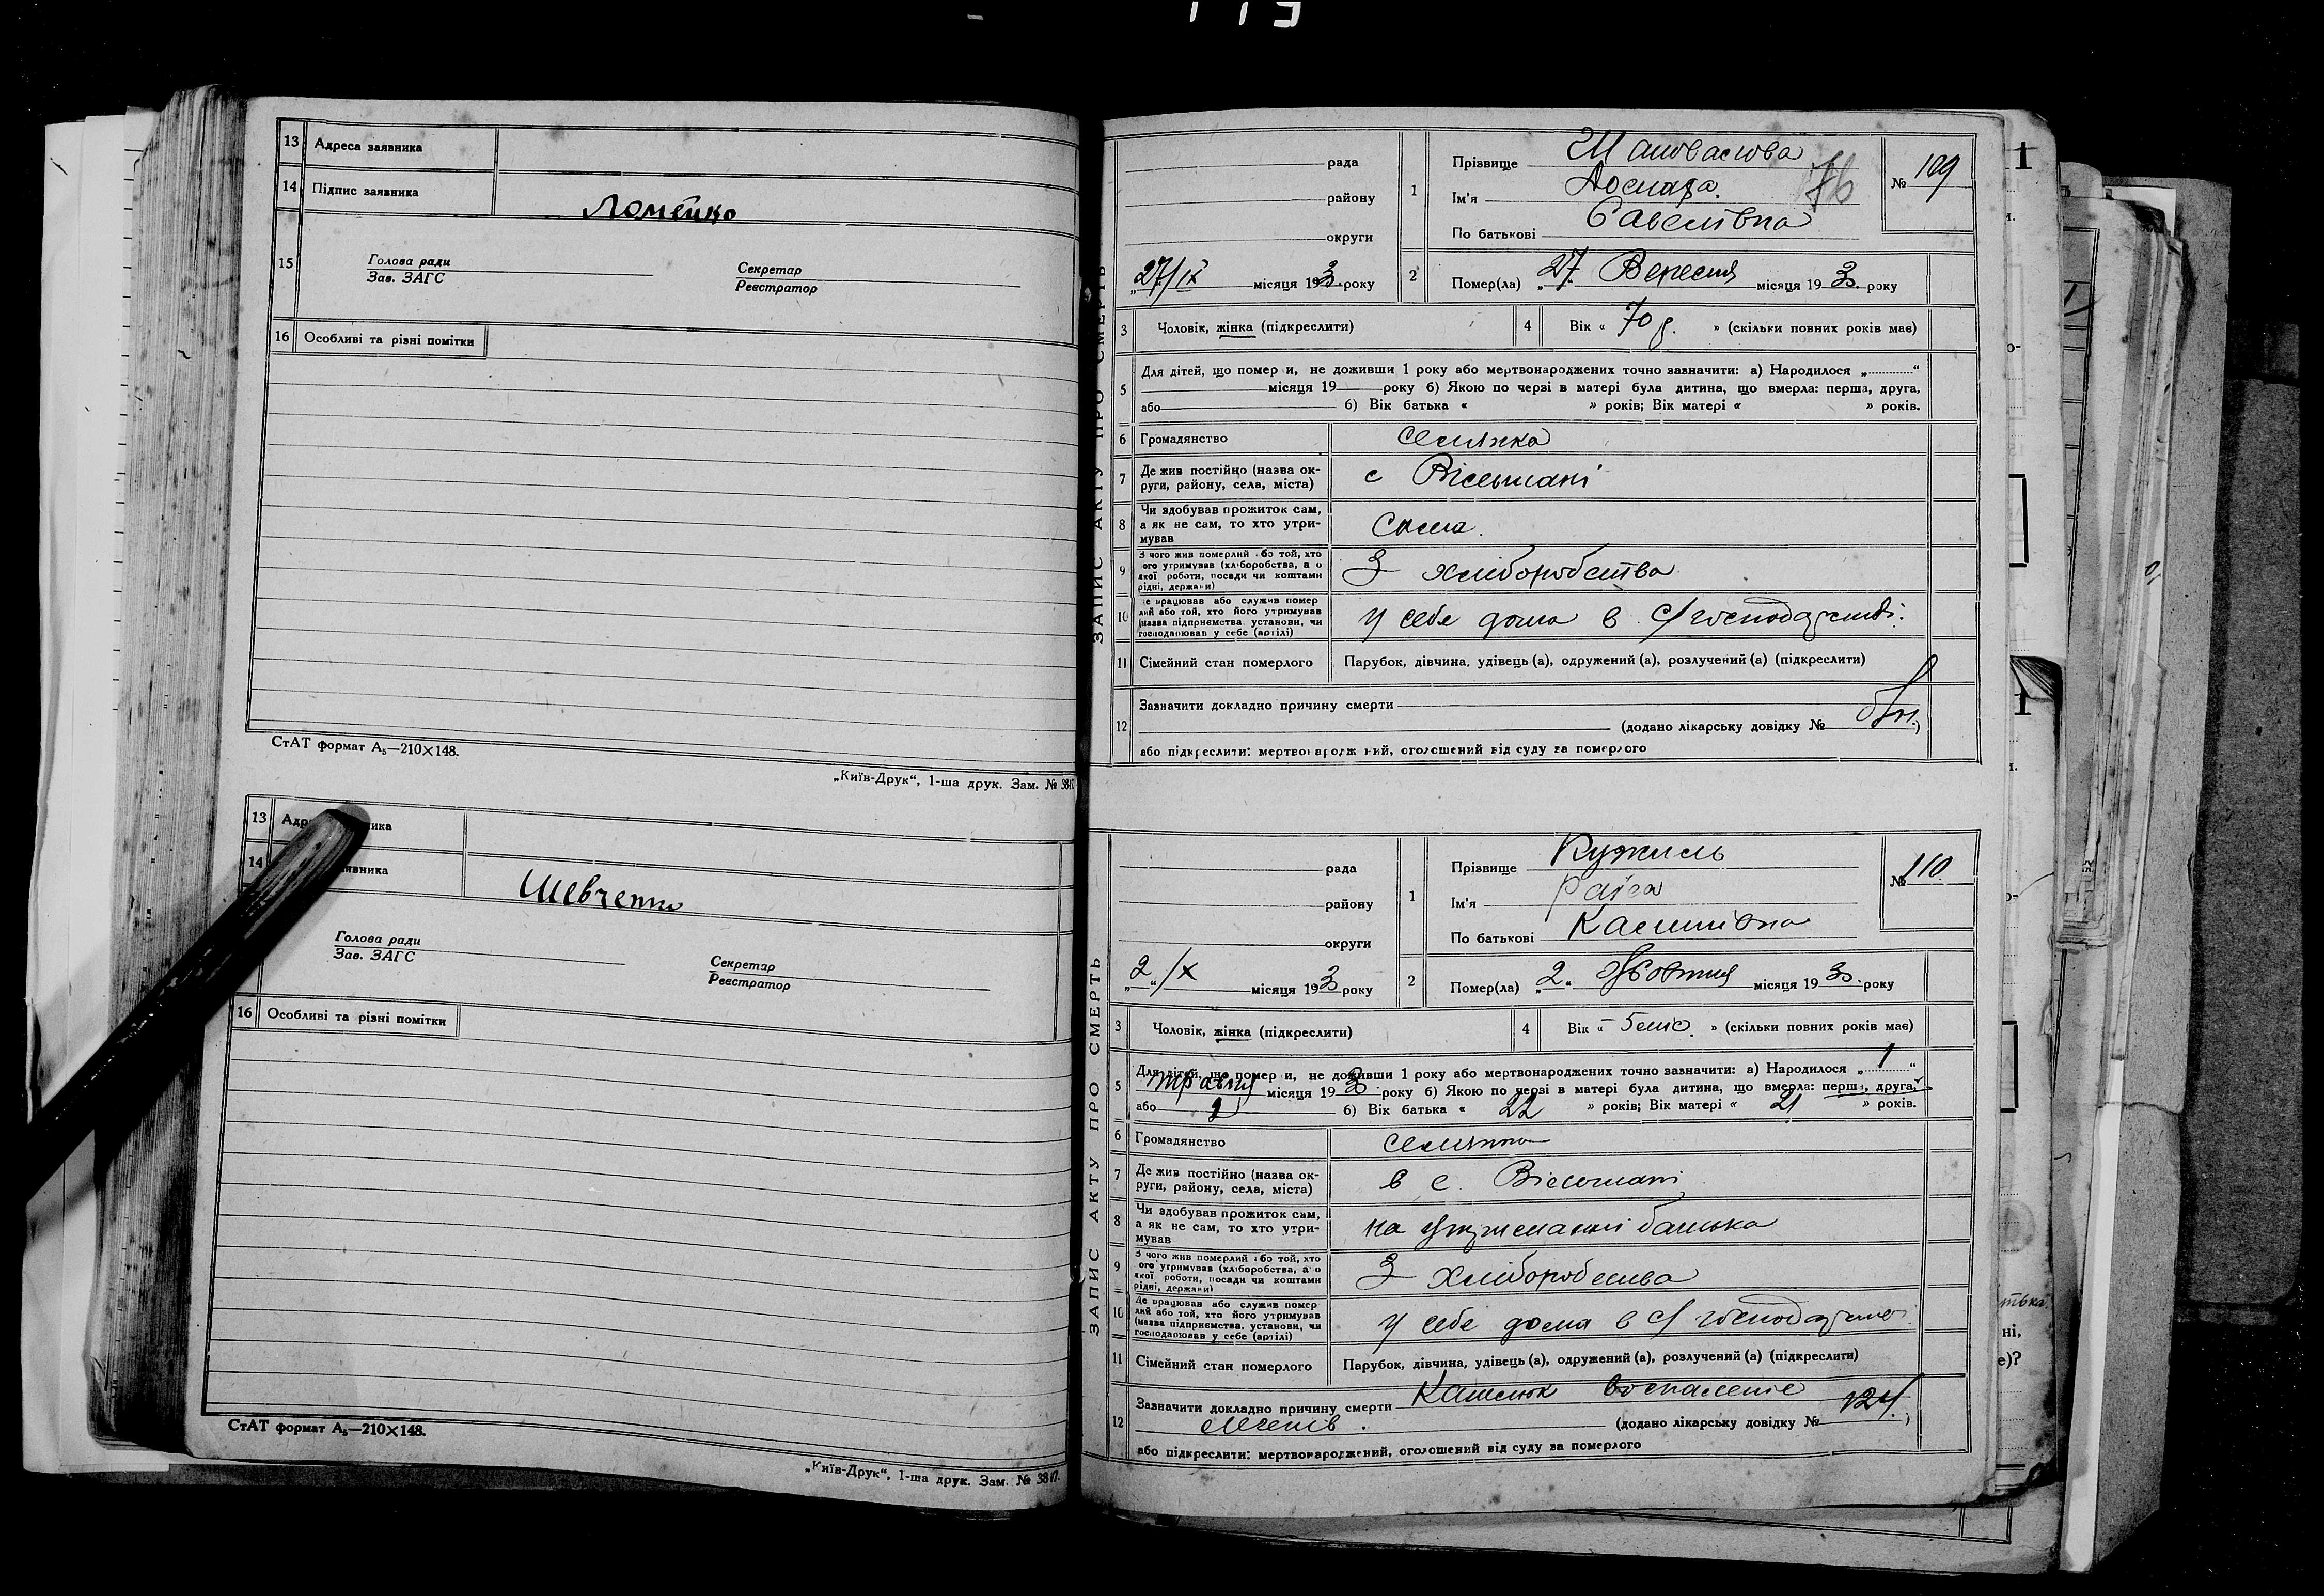 113
13 Адреса заявника
14 Підпис заявника
Ломейко
15 Голова ради
Зав. ЗАГС
Секретар
Реєстратор
16 Особливі та різні помітки
СтАТ формат А₅—210×148.
„Київ-Друк“, 1-ша друк. Зам. № 3817
13
14
Шевченко
Голова ради
Зав. ЗАГС
Секретар
Реєстратор
16 Особливі та різні помітки
СтАТ формат А₅—210×148.
„Київ-Друк“, 1-ша друк. Зам. № 3817.
ЗАПИС АКТУ ПРО СМЕРТЬ
рада
району
округи
„27/IX місяця 193 року
1 Прізвище Шаповалова
Ім'я
По батькові Савелівна
№ 109
76
2 Помер(ла) „27“ Вересня місяця 193 року
3 Чоловік, жінка (підкреслити)
4 Вік « 70 р. » (скільки повних років має)
5 Для дітей, що померли, не доживши 1 року або мертвонароджених точно зазначити: а) Народилося „ “
місяця 19 року б) Якою по черзі в матері була дитина, що вмерла: перша, друга,
або б) Вік батька « » років; Вік матері « » років.
6 Громадянство селянка
7 Де жив постійно (назва ок-
руги, району, села, міста) с Вісьмані
8 Чи здобував прожиток сам,
а як не сам, то хто утри-
мував Сама.
9 З чого жив померлий або той, хто
ого утримував (хліборобства, а о
якої роботи, посади чи коштами
рідні, держави) З хліборобства
10 Де працював або служив помер
лий або той, хто його утримував
(назва підприємства, установи, чи
господарював у себе (артілі) у себе дома в с/господарстві.
11 Сімейний стан померлого Парубок, дівчина, удівець (а), одружений (а), розлучений (а) (підкреслити)
12 Зазначити докладно причину смерти
(додано лікарську довідку № )
або підкреслити: мертвонароджений, оголошений від суду за померлого
ЗАПИС АКТУ ПРО СМЕРТЬ
рада
району
округи
„2“/X місяця 193 року
1 Прізвище Кужель
Ім'я Раїса
По батькові
№ 110
2 Помер(ла) „2“ Жовтня місяця 193 року
3 Чоловік, жінка (підкреслити)
4 Вік « 5 міс. » (скільки повних років має)
5 Для дітей, що померли, не доживши 1 року або мертвонароджених точно зазначити: а) Народилося „ 1 “
травня місяця 193 року б) Якою по черзі в матері була дитина, що вмерла: перша, друга,
або 2 б) Вік батька « 22 » років; Вік матері « 21 » років.
6 Громадянство селянка
7 Де жив постійно (назва ок-
руги, району, села, міста) в с. Вісьмані
8 Чи здобував прожиток сам,
а як не сам, то хто утри-
мував на утриманні батька
9 З чого жив померлий або той, хто
ого утримував (хліборобства, а о
якої роботи, посади чи коштами
рідні, держави) З хліборобства
10 Де працював або служив помер
лий або той, хто його утримував
(назва підприємства, установи, чи
господарював у себе (артілі) у себе дома в с/господарстві
11 Сімейний стан померлого Парубок, дівчина, удівець (а), одружений (а), розлучений (а) (підкреслити)
12 Зазначити докладно причину смерти Кашлюк воспаленіє
легенів. (додано лікарську довідку № 124.)
або підкреслити: мертвонароджений, оголошений від суду за померлого